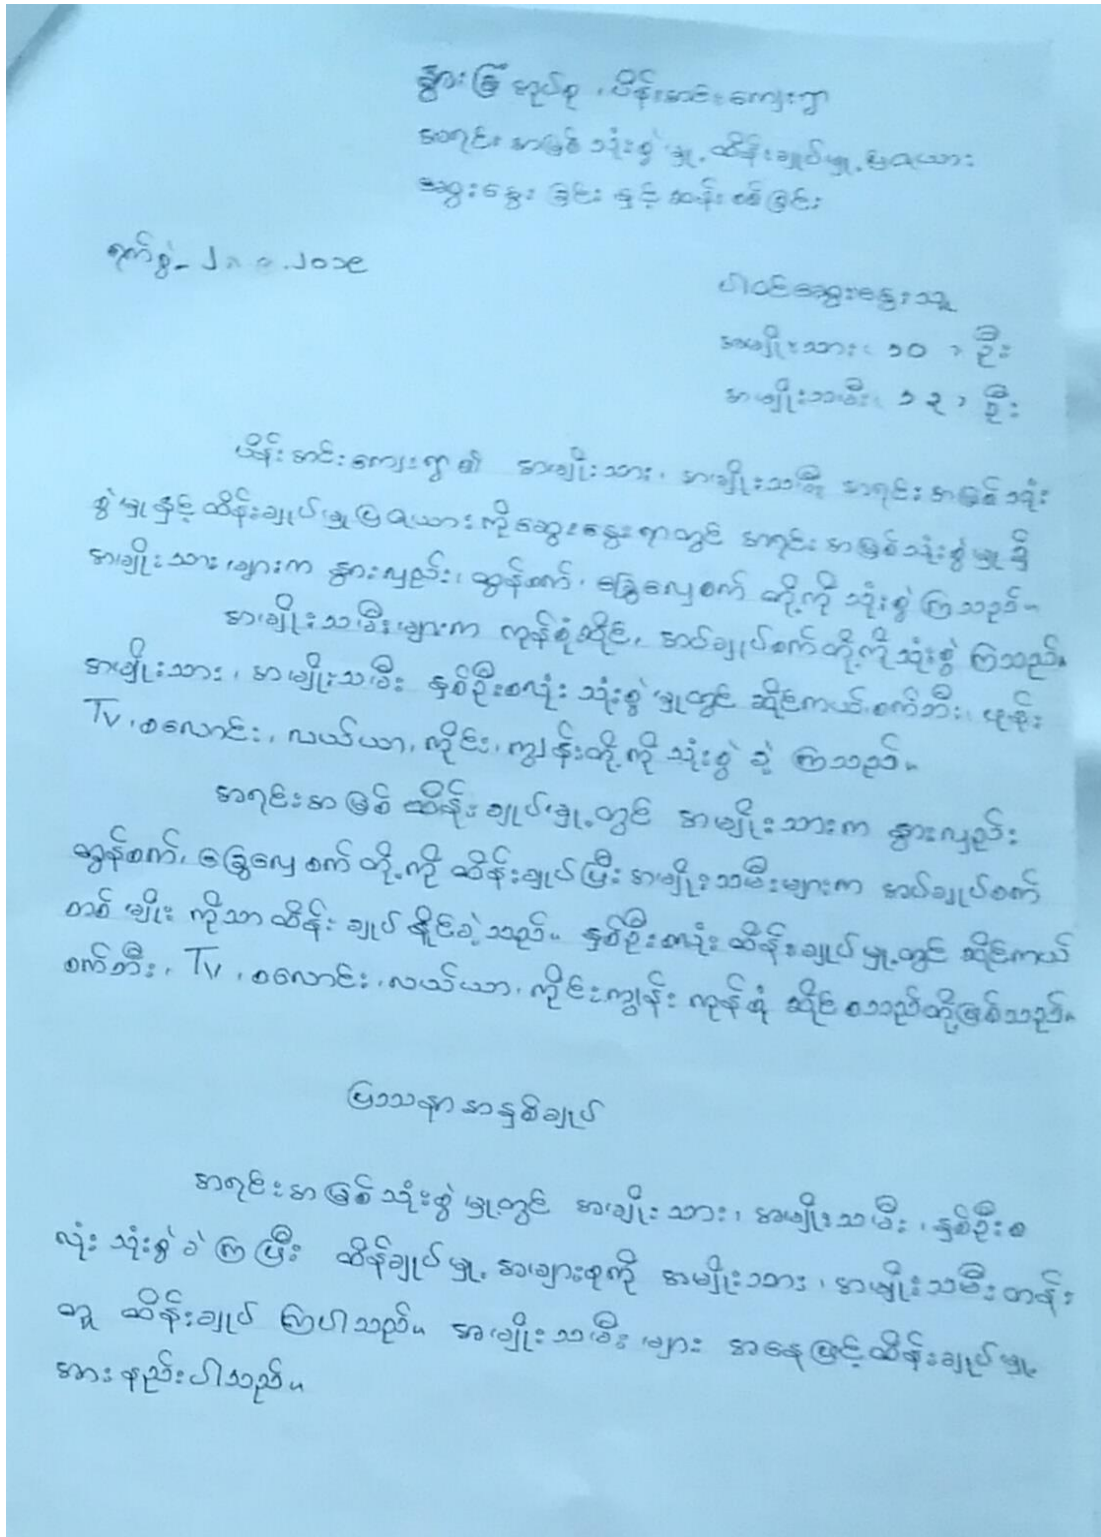 နွားခြံအုပ်စု ၊ ပိန်းအင်းကျေးရွာ
အရင်းအမြစ်သုံးစွဲမှု့ ထိန်းချုပ်မှု့ပြဇယား
ဆွေးနွေးခြင်းနှင့်ဆန်းစစ်ခြင်း
ရက်စွဲ- ၂၀၁၉
ပါဝင်ဆွေးနွေးသူ
အမျိုးသား ( ၁၀ ) ဦး
အမျိုးသမီး ( ၁၃ ) ဦး
ပိန်းအင်းကျေးရွာ၏ အမျိုးသား၊ အမျိုးသမီး အရင်းအမြစ်သုံး
စွဲမှုနှင့်ထိန်းချုပ်မှုပြဇယားကိုဆွေးနွေးရာတွင် အရင်းအမြစ်သုံးစွဲမှု၌
အမျိုးသားများက နွားလှည်း၊ ထွန်စက်၊ ခြွေလှေ့စက် တို့ကိုသုံးစွဲကြသည်။
အမျိုးသမီးများက ကုန်စုံဆိုင်၊ အပ်ချုပ်စက်တို့ကိုသုံးစွဲကြသည်။
အမျိုးသား၊ အမျိုးသမီး နှစ်ဦးစလုံး သုံးစွဲမှုတွင် ဆိုင်ကယ်၊ စက်ဘီး၊ ဖုန်း
Tv ၊ စလောင်း၊ လယ်ယာ၊ ကိုင်း၊ ကျွန်းတို့ကိုသုံးစွဲခဲ့ကြသည်။
အရင်းအမြစ်ထိန်းချုပ်မှု့တွင် အမျိုးသားက နွားလှည်း
ထွန်စက်၊ ခြွေလှေ့စက်တို့ကိုထိန်းချုပ်ပြီးအမျိုးသမီးများက အပ်ချုပ်စက်
တစ်မျိုးကိုသာထိန်းချုပ်နိုင်ခဲ့သည်။ နှစ်ဦးစလုံးထိန်းချုပ်မှု့တွင် ဆိုင်ကယ်
စက်ဘီး၊ Tv ၊ စလောင်း၊ လယ်ယာ၊ ကိုင်းကျွန်း ကုန်စုံဆိုင်စသည်တို့ဖြစ်သည်။
ပြဿနာအနှစ်ချုပ်
အရင်းအမြစ်သုံးစွဲမှု့တွင် အမျိုးသား၊ အမျိုးသမီး၊ နှစ်ဦးစ
လုံးသုံးစွဲခဲ့ကြပြီး ထိန်ချုပ်မှု့ အများစုကို အမျိုးသား၊ အမျိုးသမီးတန်း
တူ ထိန်းချုပ်ကြပါသည်။ အမျိုးသမီးများ အနေဖြင့်ထိန်းချုပ်မှု့
အားနည်းပါသည်။